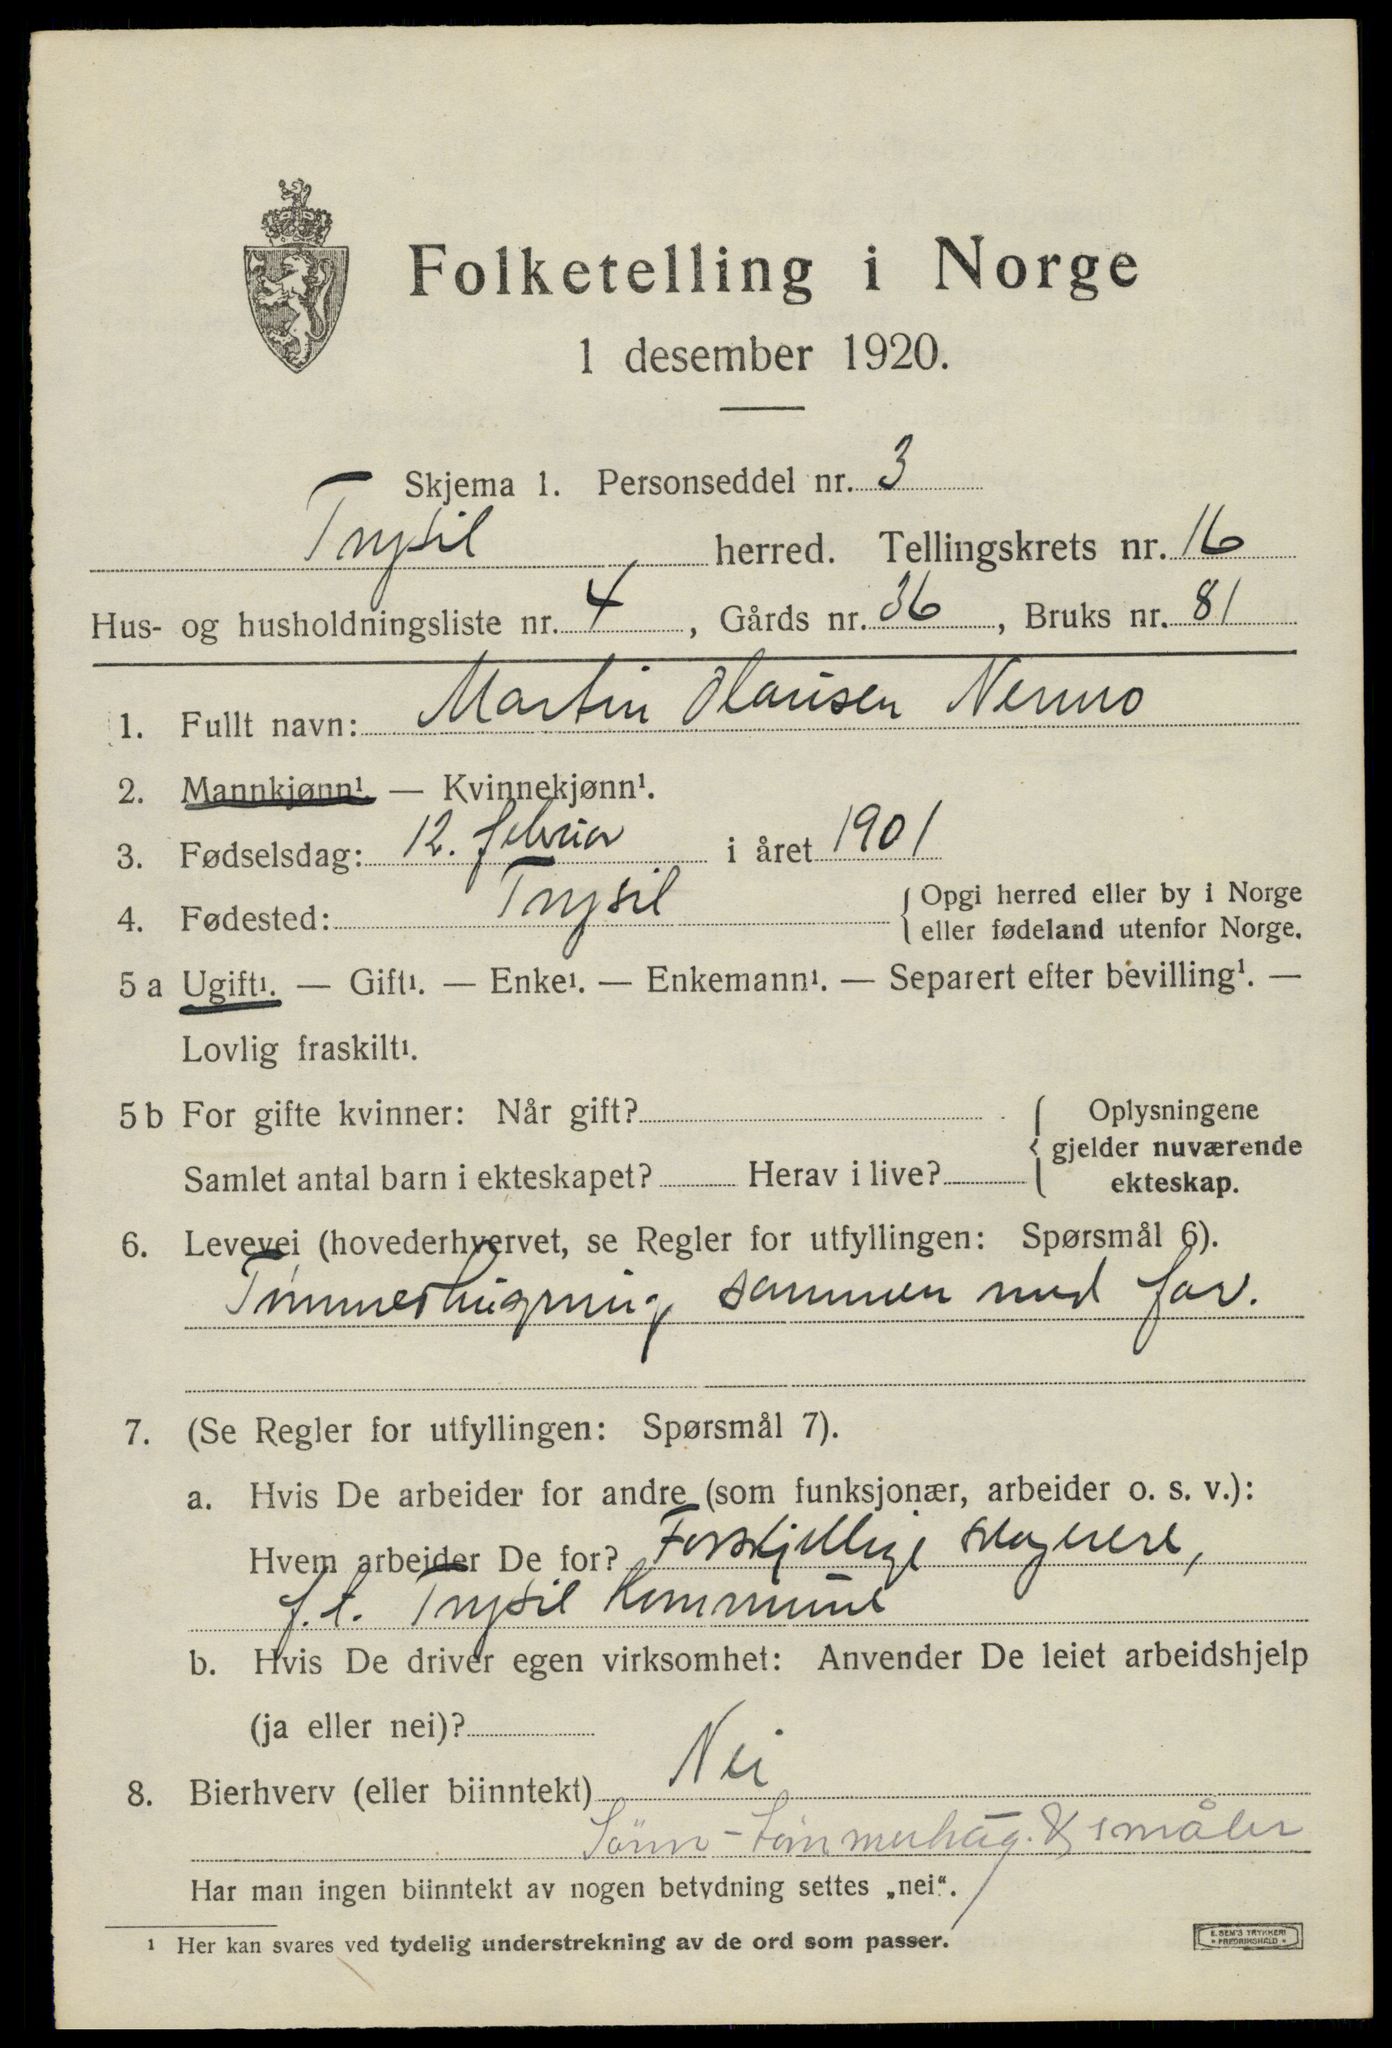 Folketelling i Norge
1 desember 1920.
Skjema 1. Personseddel nr. 3
Trysil herred. Tellingskrets nr. 16
Hus- og husholdningsliste nr. 4, Gårds nr. 36, Bruks nr. 81
1. Fullt navn: Martin Olausen Nermo
2. Mannkjønn¹ — Kvinnekjønn¹.
3. Fødselsdag: 12. februar i året 1901
4. Fødested: Trysil { Opgi herred eller by i Norge
eller fødeland utenfor Norge.
5 a Ugift¹. — Gift¹. — Enke¹. — Enkemann¹. — Separert efter bevilling¹. —
Lovlig fraskilt¹.
5 b For gifte kvinner: Når gift? { Oplysningene
gjelder nuværende
Samlet antal barn i ekteskapet? Herav i live? ekteskap.
6. Levevei (hovederhvervet, se Regler for utfyllingen: Spørsmål 6).
Tømmerhugning sammen med far.
7. (Se Regler for utfyllingen: Spørsmål 7).
a. Hvis De arbeider for andre (som funksjonær, arbeider o. s. v.):
Hvem arbeider De for? Forskjellige skogeiere,
f.t. Trysil Kommune
b. Hvis De driver egen virksomhet: Anvender De leiet arbeidshjelp
(ja eller nei)?
8. Bierhverv (eller biinntekt) Nei
Sönn - tömmerhug. &
Har man ingen biinntekt av nogen betydning settes „nei“.
¹ Her kan svares ved tydelig understrekning av de ord som passer.
E. SEM'S TRYKKERI
* FREDRIKSHALD *